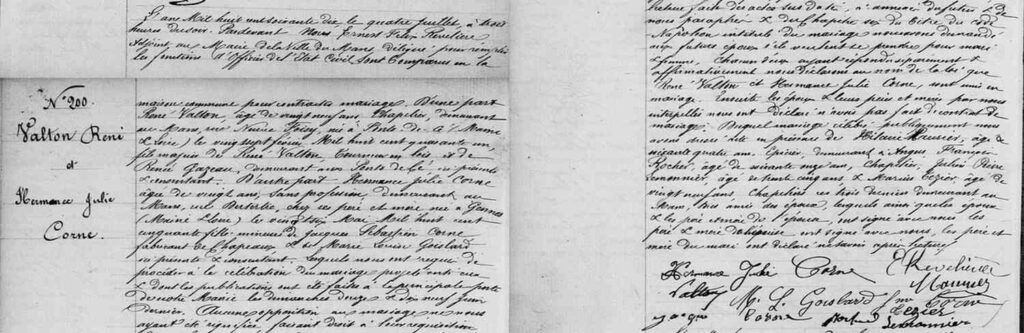 L'an Mil huit cent soixante dix, le quatre Juillet, à trois
heures du soir. Pardevant Nous Ernest Félix
Adjoint au Maire de la Ville du Mans délégué pour remplir
les fonctions d'Officier de l'Etat Civil sont Comparus en la
N° 200.
Valton René
et
Hermance Julie
Corne.
maison commune pour contracter mariage. D'une part
René Valton, âgé de vingt neuf ans Chapelier, demeurant
au Mans, rue né à Ponts de Cé (Maine
& Loire) le vingt sept Mil huit cent quarante un,
fils majeur de René Valton tourneur en bois & de
Renée Gazeau, demeurant aux Ponts de Cé ici présents
& consentant. D'autre part Hermance Julie Corne
âgée de vingt ans Sans profession demeurant au
Mans, rue chez ses père et mère née à Gennes
(Maine & Loire) le vingt six Mai Mil huit cent
cinquante fille mineure de Jacques Sébastien Corne
fabricant de Chapeaux & de Marie Louise Goislard
ici présents & consentant. Lesquels nous ont requis de
procéder à la célébration du mariage projeté entre eux
& dont les publications ont été faites à la principale porte
de notre Mairie les dimanches douze & dix neuf Juin
dernier. Aucune opposition au mariage ne nous
ayant été signifiée, faisant droit à leur réquisition
lecture faite des actes sus datés, à
nous paraphés & du Chapitre six du titre du code
Napoléon intitulé du mariage nous avons demandé
aux futurs époux s'ils veulent se prendre pour mari
& femme. Chacun d'eux ayant répondu séparément &
affirmativement nous déclarons au nom de la loi que
René Valton et Hermance Julie Corne, sont unis en
mariage. Ensuite les époux & leurs pères et mères par nous
interpellés nous ont déclaré n'avoir pas fait de contrat de
mariage. Duquel mariage célébré publiquement nous
avons dressé acte en présence de Hilaire Meunier, âgé de
ans, Epicier, demeurant à Angers François
Rocher, âgé de ans, Chapelier, Julien Pierre
Lemonnier, âgé de trente cinq ans, & Marius Tézier, âgé de
vingt neuf ans, Chapeliers ces trois derniers demeurant au
Mans, tous amis des époux, lesquels ainsi que les époux
& les père et mère de l'épouse, ont signé avec nous. Les
père & mère de l'épouse ont signé avec nous, les père et
mère du mari ont déclaré ne savoir après lecture
Hermance Julie Corne
Valton M. L. Goislard Corne Meunier
Jacques Corne Rocher Tezier
Lemonnier